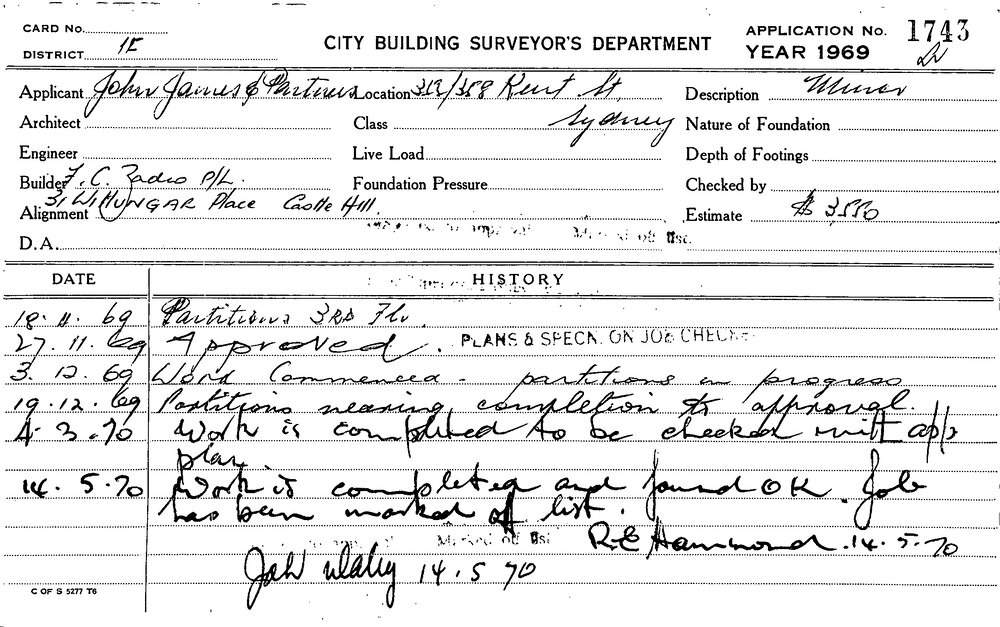 CARD No.
DISTRICT 1E
CITY BUILDING SURVEYOR'S DEPARTMENT
APPLICATION No. 1743
YEAR 1969
Applicant John James & Partners Location 353/358 Kent St. Description Minor
Architect Class Sydney Nature of Foundation
Engineer Live Load Depth of Footings
Builder F. C. Zadro P/L. Foundation Pressure Checked by
Alignment 31 WILLUNGAR Place Castle Hill. Estimate $ 3550
approval Marked off list.
D.A.
DATE HISTORY
18.11.69 Partitions 3RD Flr.
27.11.69 Approved. PLANS & SPECN. ON JOB CHECKED
3.12.69 Work Commenced - partitions in progress
19.12.69 Partitions nearing completion to approval.
4.3.70 Work is completed to be checked with app
plan.
14.5.70 Work is completed and found OK. Job
has been marked off list.
approval Marked off list R.E Hammond. 14.5.70
14.5 70
C OF S 5277 T6